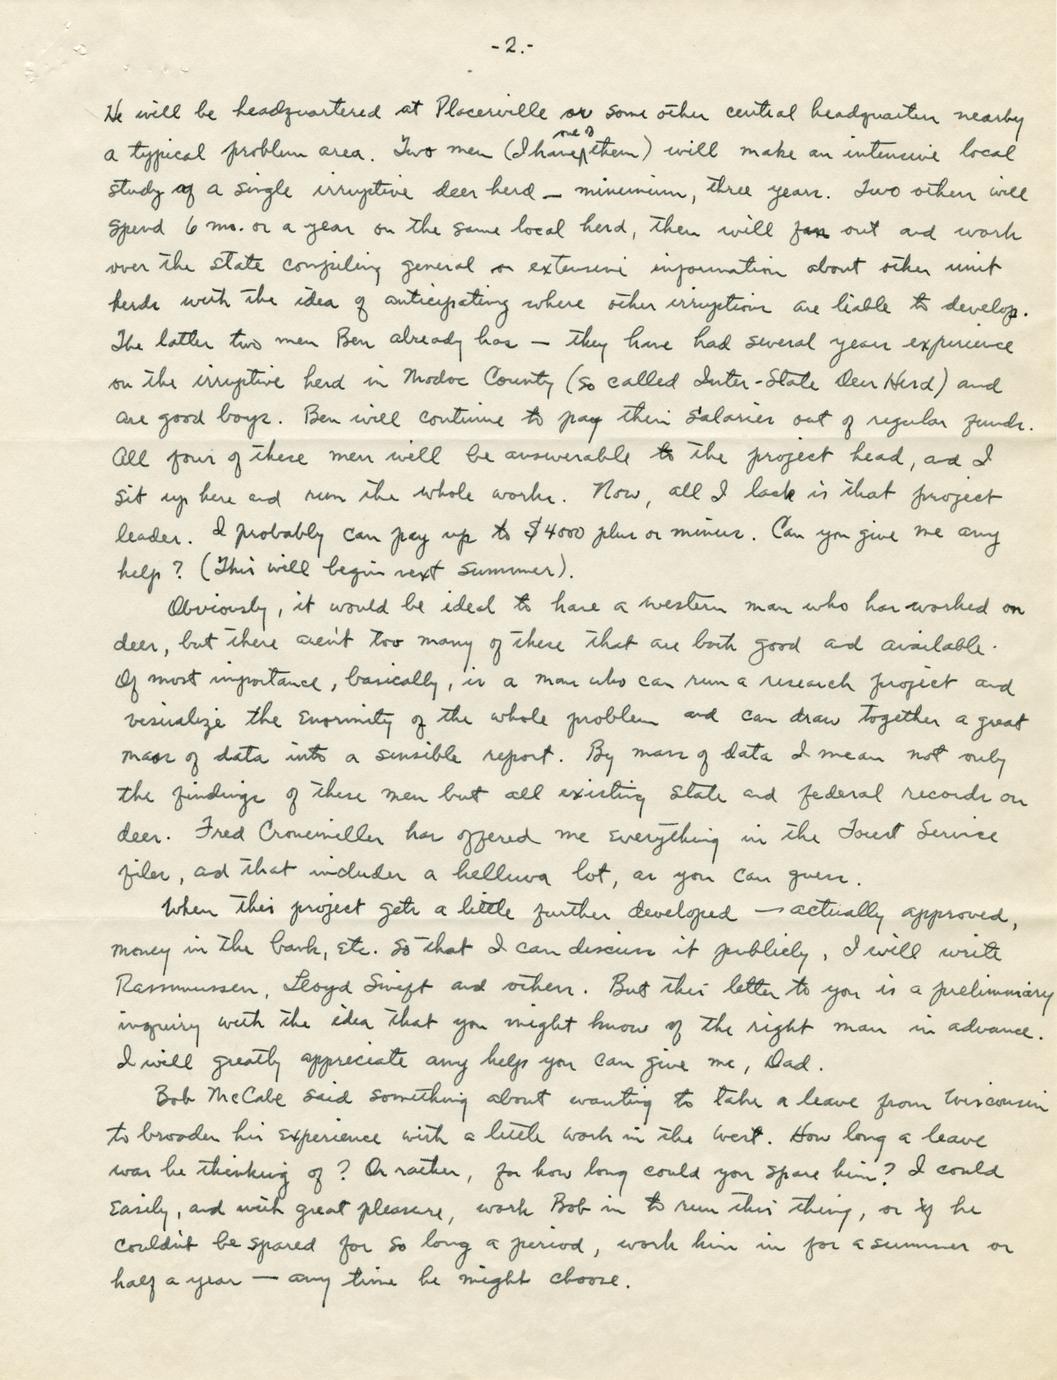 -2.-
He will be headquartered at Placerville or some other central headquarters nearby
one of
a typical problem area. Two men (I have them) will make an intensive local
study of a single irruptive deer herd — minimum, three years. Two others will
spend 6 mo. or a year on the same local herd, then will fan out and work
over the state compiling general or extensive information about other unit
herds with the idea of anticipating where other irruptions are liable to develop.
The latter two men Ben already has — they have had several years experience
on the irruptive herd in Modoc County (so called Inter-State Deer Herd) and
are good boys. Ben will continue to pay their salaries out of regular funds.
All four of these men will be answerable to the project head, and I
sit up here and run the whole works. Now, all I lack is that project
leader. I probably can pay up to $4000 plus or minus. Can you give me any
help? (This will begin next summer).
Obviously, it would be ideal to have a western man who has worked on
deer, but there aren't too many of these that are both good and available.
Of most importance, basically, is a man who can run a research project and
visualize the enormity of the whole problem and can draw together a great
mass of data into a sensible report. By mass of data I mean not only
the findings of these men but all existing state and federal records on
deer. Fred Cronemiller has offered me everything in the Forest Service
files, and that includes a helluva lot, as you can guess.
When this project gets a little further developed — actually approved,
money in the bank, etc. so that I can discuss it publicly, I will write
Rasmussen, Lloyd Swift and others. But this letter to you is a preliminary
inquiry with the idea that you might know of the right man in advance.
I will greatly appreciate any help you can give me, Dad.
Bob McCabe said something about wanting to take a leave from Wisconsin
to broaden his experience with a little work in the West. How long a leave
was he thinking of? Or rather, for how long could you spare him? I could
easily, and with great pleasure, work Bob in to run this thing, or if he
couldn't be spared for so long a period, work him in for a summer or
half a year — any time he might choose.